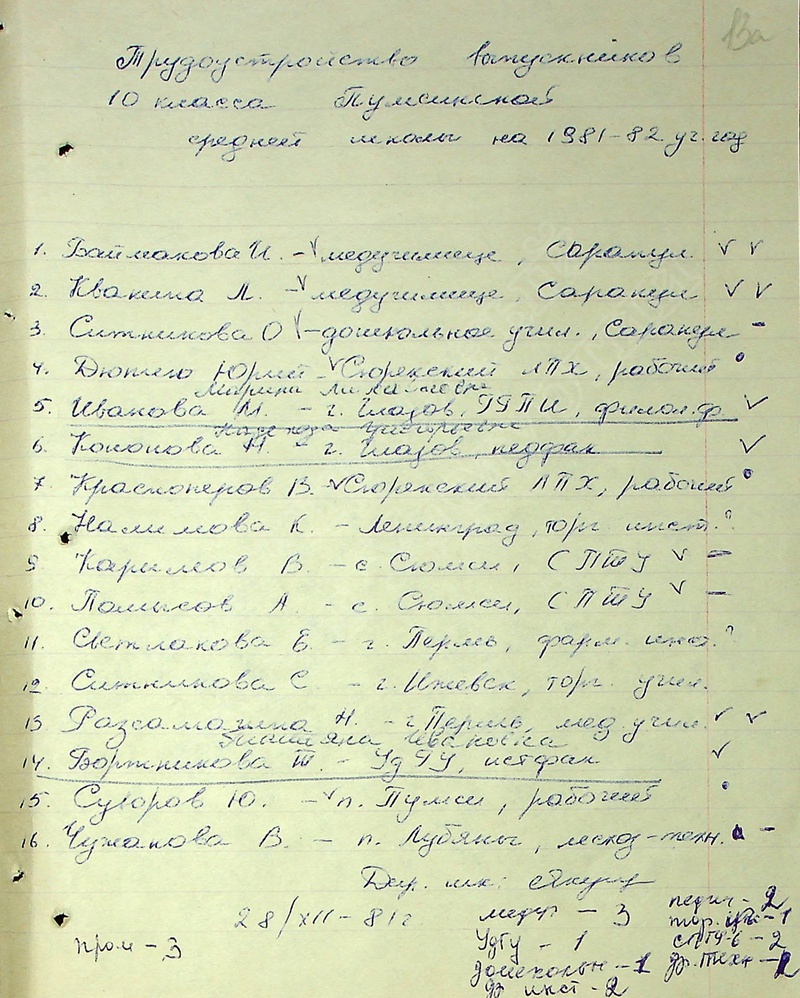 13а
Трудоустройство выпускников
10 класса Пумсинской
средней школы на 1981-82 уч. год
1. Баймакова И. - √ медучилище, Сарапул √ √
2. Квакина Л. - √ медучилище, Сарапул √ √
3. Ситникова О √ - дошкольное учил., Сарапул -
4. Дютино Юрий √ Сюрекский ЛПХ, рабочий
Марина Михайловна
5. Иванова М. - г. Глазов, ГГПИ, филол.ф. √
Надежда Григорьевна
6. Кононова Н. - г. Глазов, педфак √
7. Красноперов В. √ Сюрекский ЛПХ, рабочий
8. Налимова К. - Ленинград, торг. инст. ?
9. Каримов В. - с. Сюмси, СПТУ √ -
10. Помысов А. - с. Сюмси, СПТУ √ -
11. Светлакова Е. - г. Пермь, фарм. инс. ?
12 Ситникова С. - г. Ижевск, торг. учил.
13 Разсамагина Н. - г Пермь, мед. учил. √ √
Татьяна Ивановна
14. Бортникова Т. - УдГУ, истфак √
15. Суворов Ю. - √ п. Пумси, рабочий
16. Чужанова В. - п. Лубяны, лесхоз-техн. -
Дир. шк:
28/XII-81г
пром - 3
медуч - 3
УдГУ - 1
дошкольн - 1
др инст - 2
педин - 2
тор. уч - 1
СПТУ-6 - 2
др. техн -